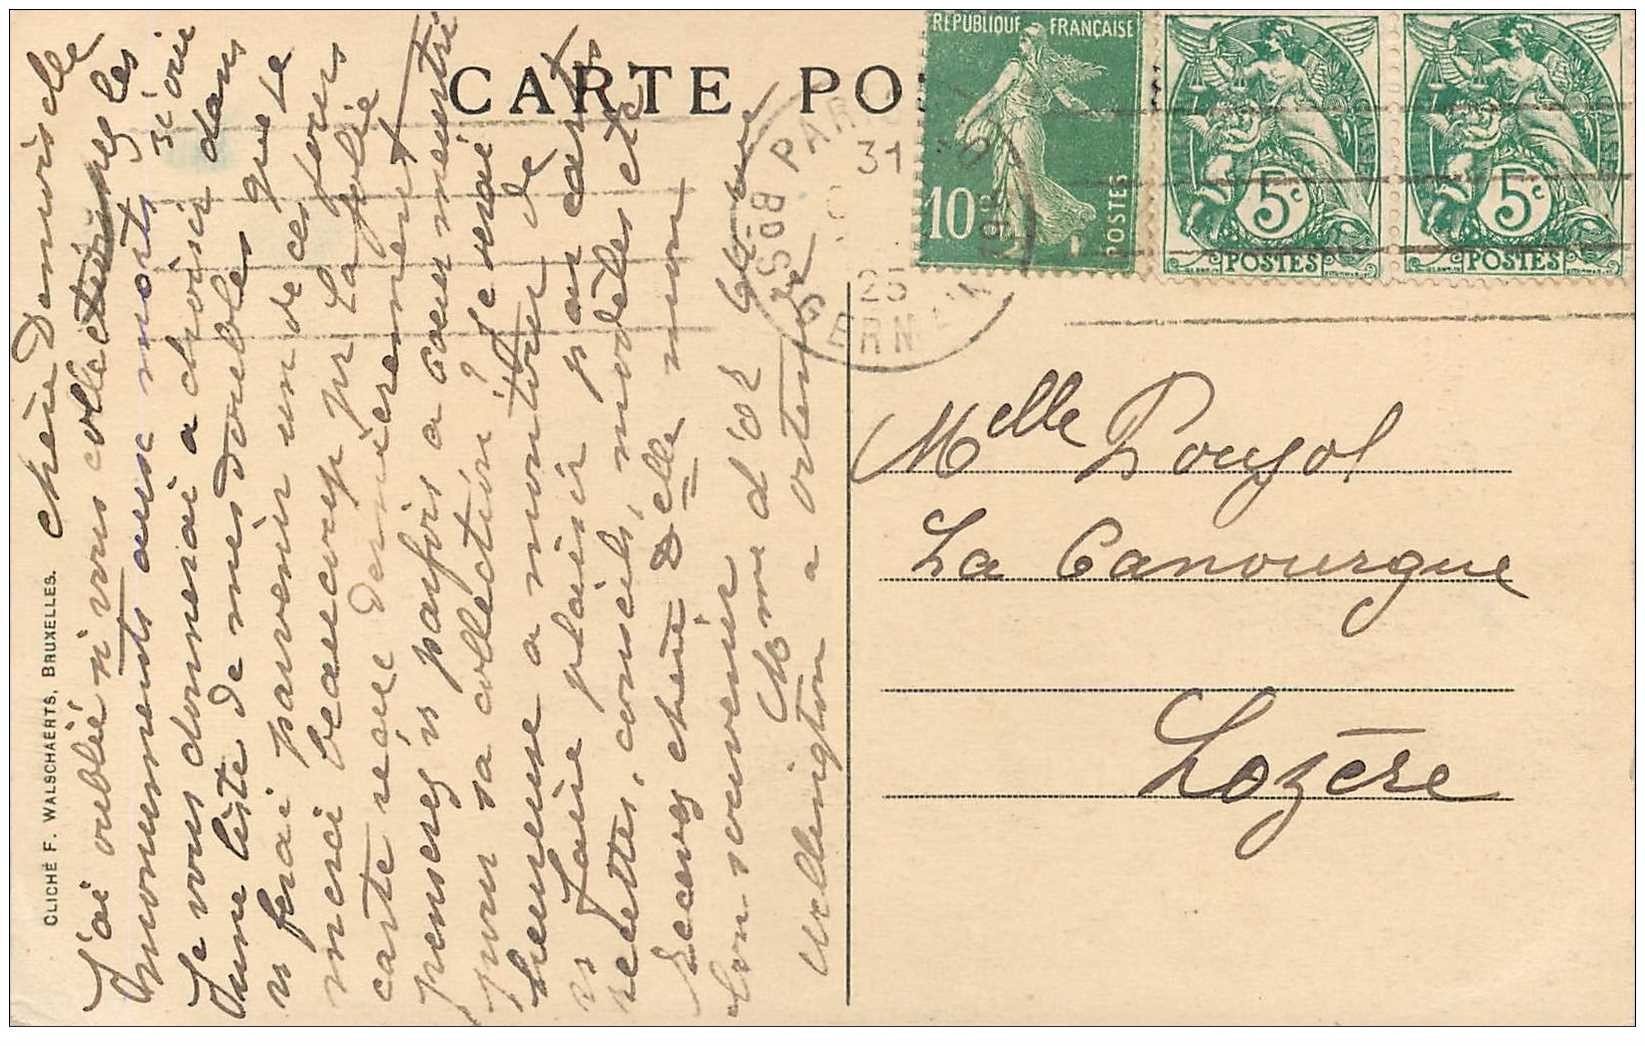 CARTE PO
RÉPUBLIQUE FRANÇAISE
10
POSTES
5c
POSTES
5c
POSTES
31
25
BD ST GERMAIN
CLICHÉ F. WALSCHAERTS, BRUXELLES.
chère Demoiselle
J'ai oublié si vous collectionnez les
monuments aux morts si oui
Je vous donnerai a choisir dans
une liste de mes doubles que Je
vs ferai parvenir un de ces Jours
merci beaucoup pr la jolie
carte reçue dernièrement
pensez vs parfois a
pour sa collection? Je serai
heureuse a mon tour de
vs faire plaisir par cartes
recettes, conseils, modèles etc
Recevez chère Delle mon
bon souvenir
Mme d'
Wellington a
Melle Poujol
La Canourgue
Lozère